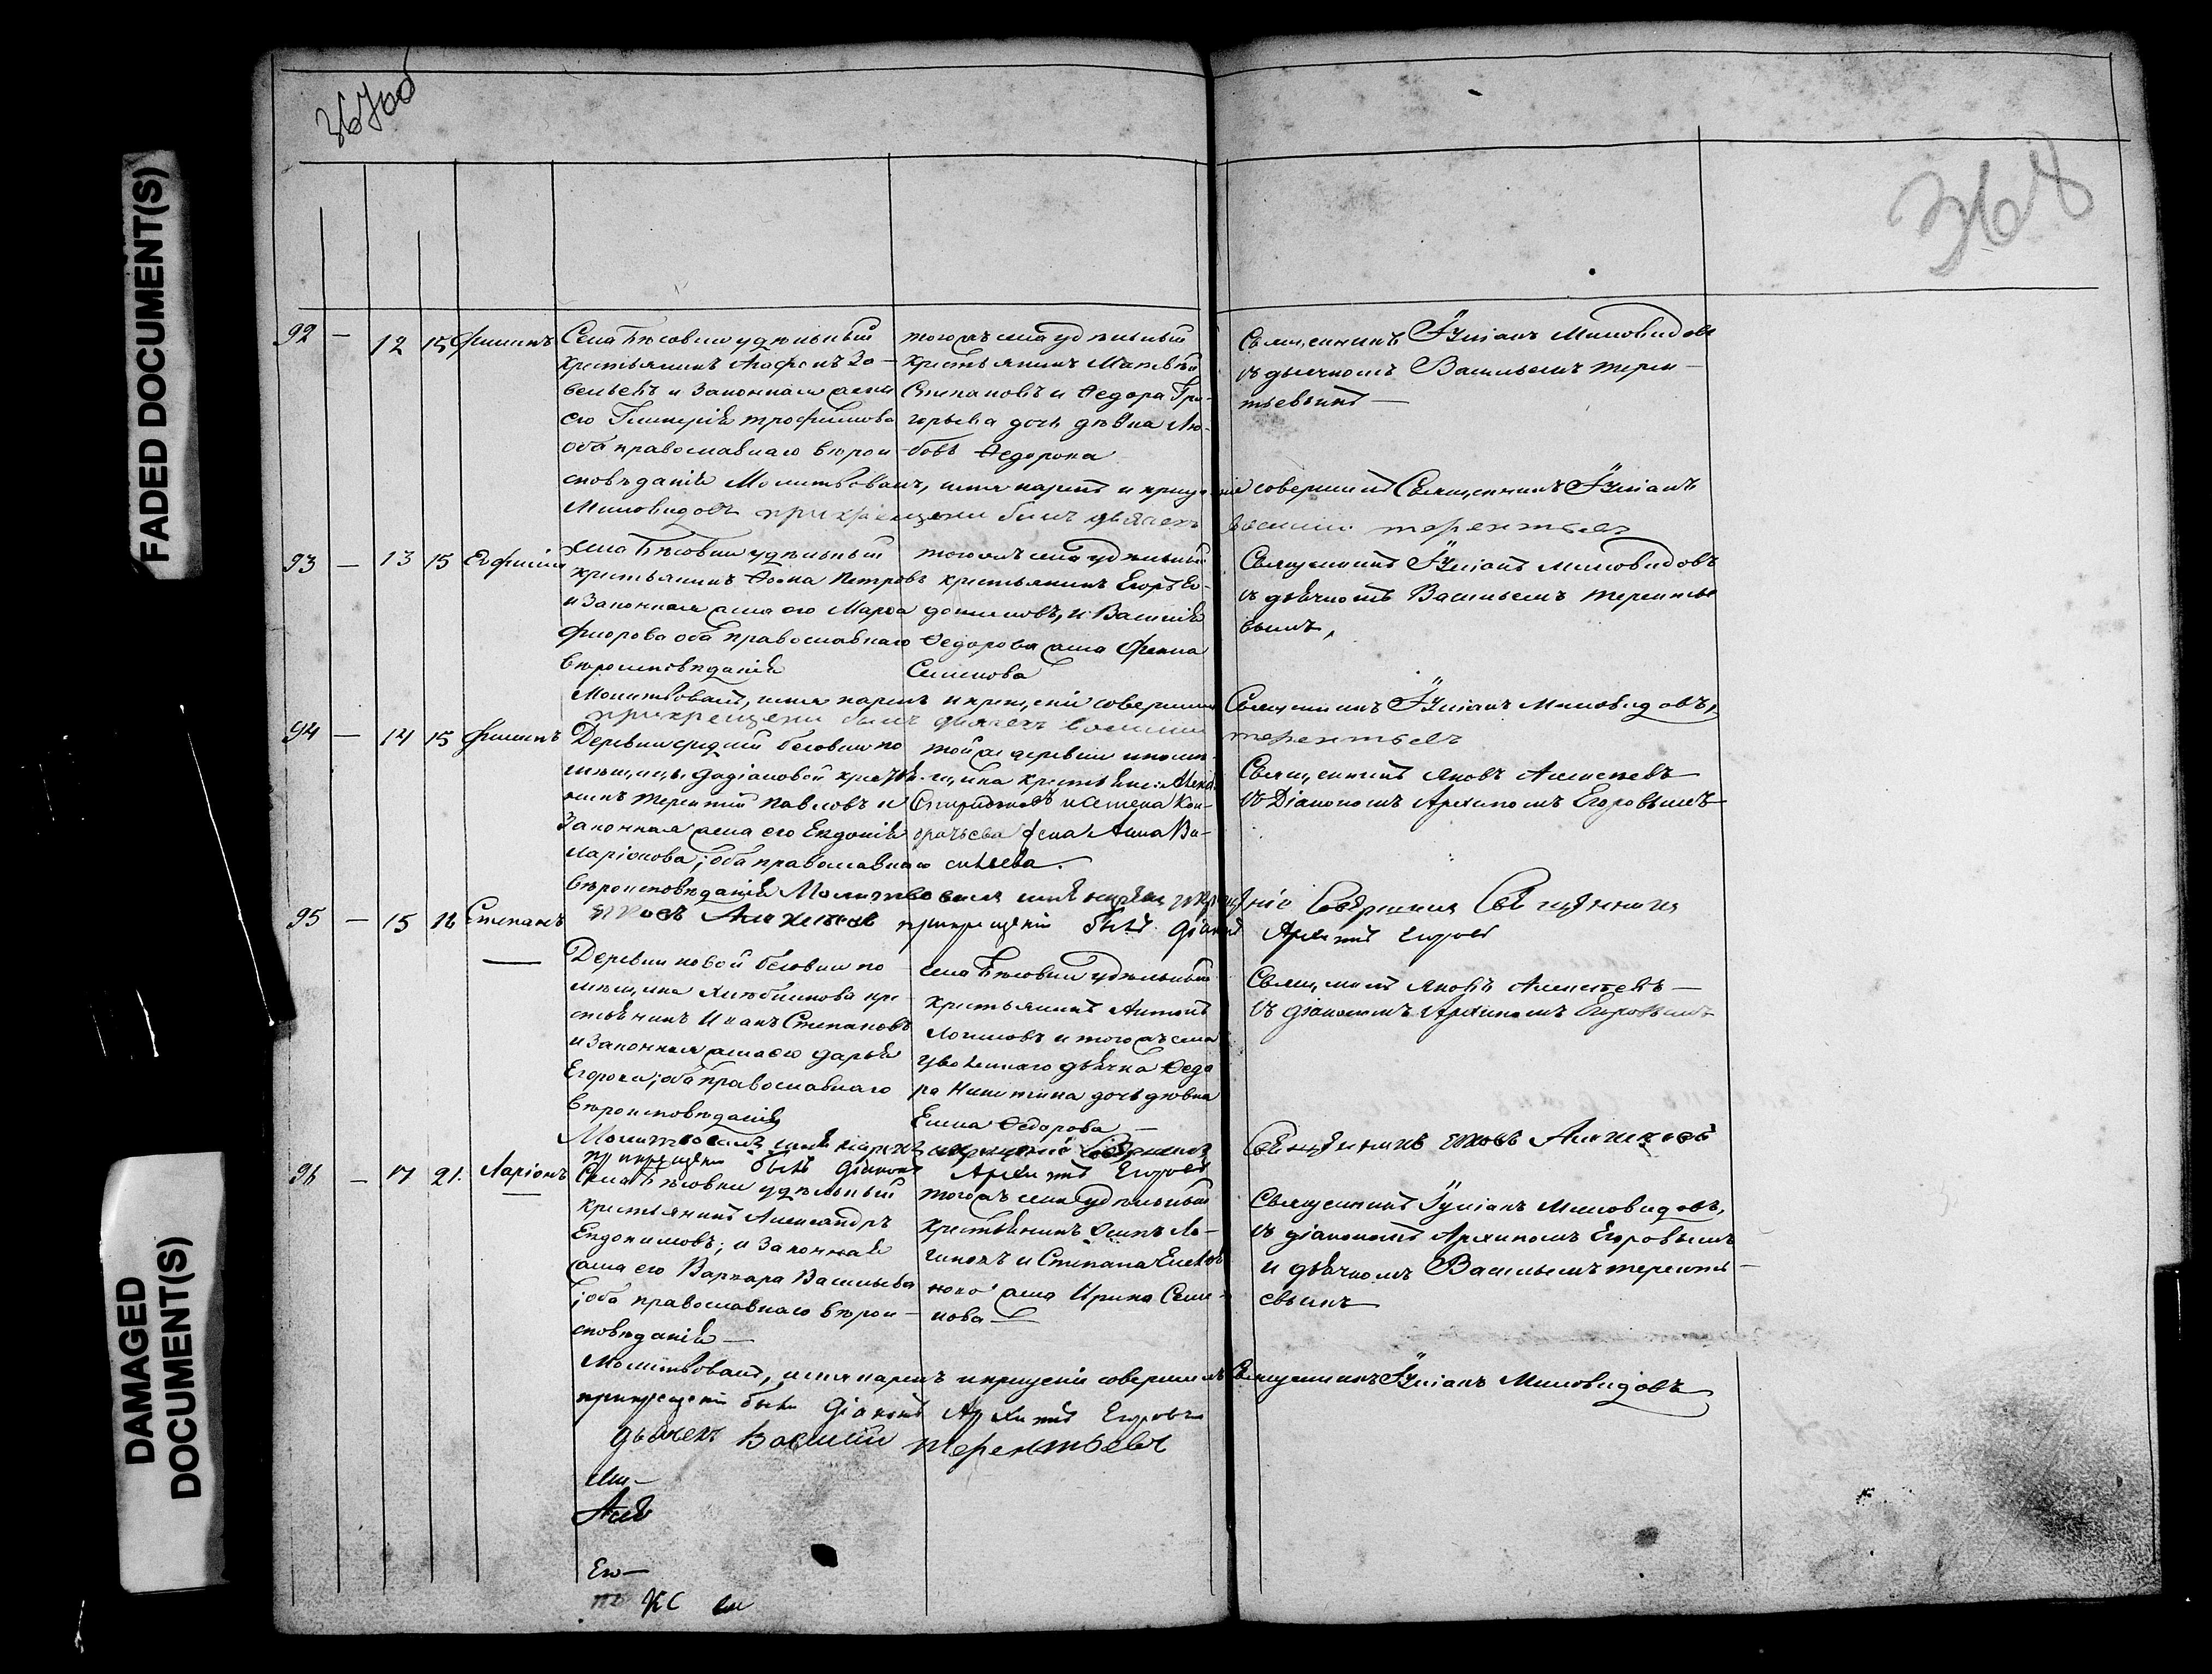 367об
368
FADED DOCUMENT(S)
DAMAGED
DOCUMENT(S)
92 — 12 15 Филиппъ
Села Бѣсовки удѣльный
крестьянинъ Агафонъ Са-
вельевъ и законная жена
его Гликерія Трофимова
оба православнаго вѣрои-
того жъ села удѣльный
крестьянинъ Матвѣй
Степановъ и Ѳедора Гри-
горьева дочь дѣвка Лю-
бовь Ѳедорова
Священникъ Іуліанъ Миловидовъ
съ дьячкомъ Васильемъ Терен-
тьевымъ —
сповѣданія Молитвовалъ, имя нарекъ и крещеніе совершилъ Священникъ Іуліанъ
Миловидовъ при крещеніи былъ дьячекъ Василій Терентьевъ
93 — 13 15 Евфимія
села Бѣсовки удѣльный
крестьянинъ Ѳома Петровъ
и законная жена его Марѳа
Флорова оба православнаго
вѣроисповѣданія
того жъ села удѣльный
крестьянинъ Егоръ Ев-
докимовъ, и Василія
Ѳедорова жена Фекла
Семенова
Священникъ Іуліанъ Миловидовъ
съ дьячкомъ Васильемъ Терентье
вымъ,
Молитвовалъ, имя нарекъ и крещеніе совершилъ Священникъ Іуліанъ Миловидовъ,
при крещеніи былъ дьячекъ Василій Терентьевъ
94 — 14 15 Филиппъ
Деревни средней Бесовки по
мѣщицы Дадіановой кресть-
янинъ Терентій Павловъ и
Законная жена его Евдокія
Ларіонова; оба православнаго
той же деревни
крестьянинъ
Спиридоновъ и Семена Кон-
дратьева жена Анна Ва-
сильева.
Священникъ Яковъ Алексѣевъ
съ Діакономъ Архипомъ Егоровымъ —
вѣроисповѣданія Молитвовалъ имя нарекъ и крещеніе Совершилъ Священникъ
Яковъ Алексѣевъ при крещеніи былъ Діаконъ Архипъ Егоровъ
95 — 15 16 Степанъ
Деревни новой Бесовки по
мѣщика Хлѣбникова кре-
стьянинъ Иванъ Степановъ
и Законная жена его Дарья
Егорова; оба православнаго
вѣроисповѣданія
села Бѣсовки удѣльный
крестьянинъ Антонъ
Логиновъ и того жъ села
уволеннаго дьячка Ѳедо
ра Никитина дочь дѣвка
Елена Ѳедорова —
Священникъ Яковъ Алексѣевъ —
съ діакономъ Архипомъ Егоровымъ
Молитвовалъ имя нарекъ и крещеніе Совершилъ Священникъ Яковъ Алексѣевъ
при крещеніи былъ Діаконъ Архипъ Егоровъ
96 — 17 21. Ларіонъ
Села Бѣсовки удѣльный
крестьянинъ Александръ
Евдокимовъ; и Законная
жена его Варвара Васильева
; оба православнаго вѣрои-
сповѣданія —
того жъ села удѣльный
крестьянинъ Осипъ Ло-
гиновъ и Степана
жена Ирина Семе-
нова —
Священникъ Іуліанъ Миловидовъ,
съ діакономъ Архипомъ Егоровымъ
и дьячкомъ Васильемъ Теренть-
евымъ —
Молитвовалъ, имя нарекъ и крещеніе совершилъ Священникъ Іуліанъ Миловидовъ
при крещеніи былъ Діаконъ Архипъ Егоровъ
дьячекъ Василій Терентьевъ
Ми—
Але
Его—